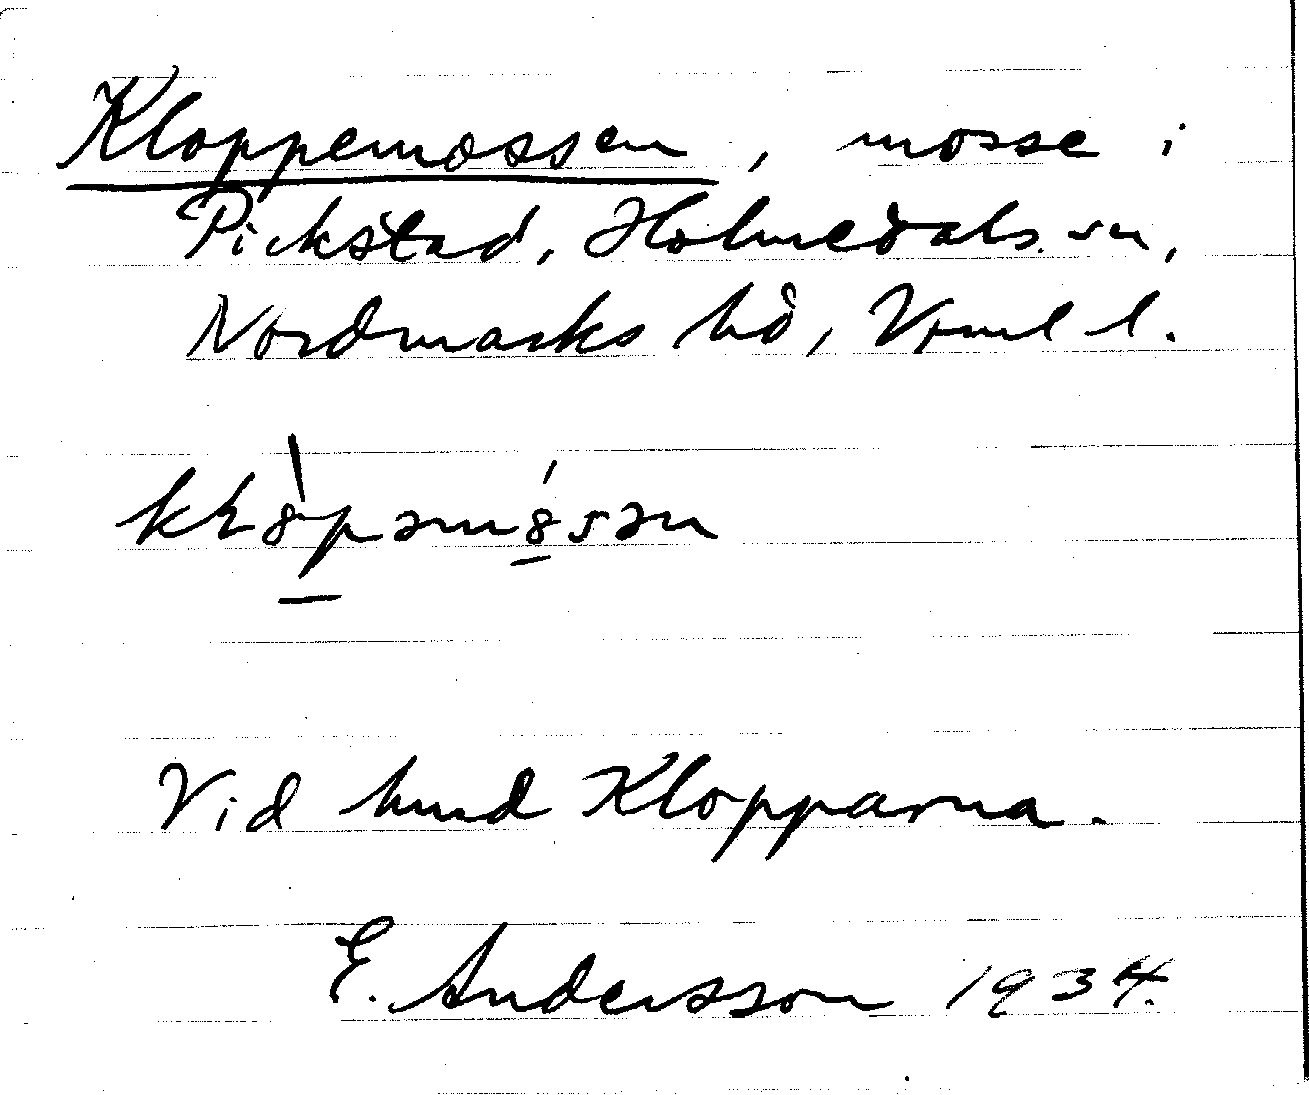 Kloppemossen, mosse i
Pickstad, Holmedals sn,
Nordmarks hd, Vrml l.
Vid hmd Klopparna.
E. Andersson 1934.